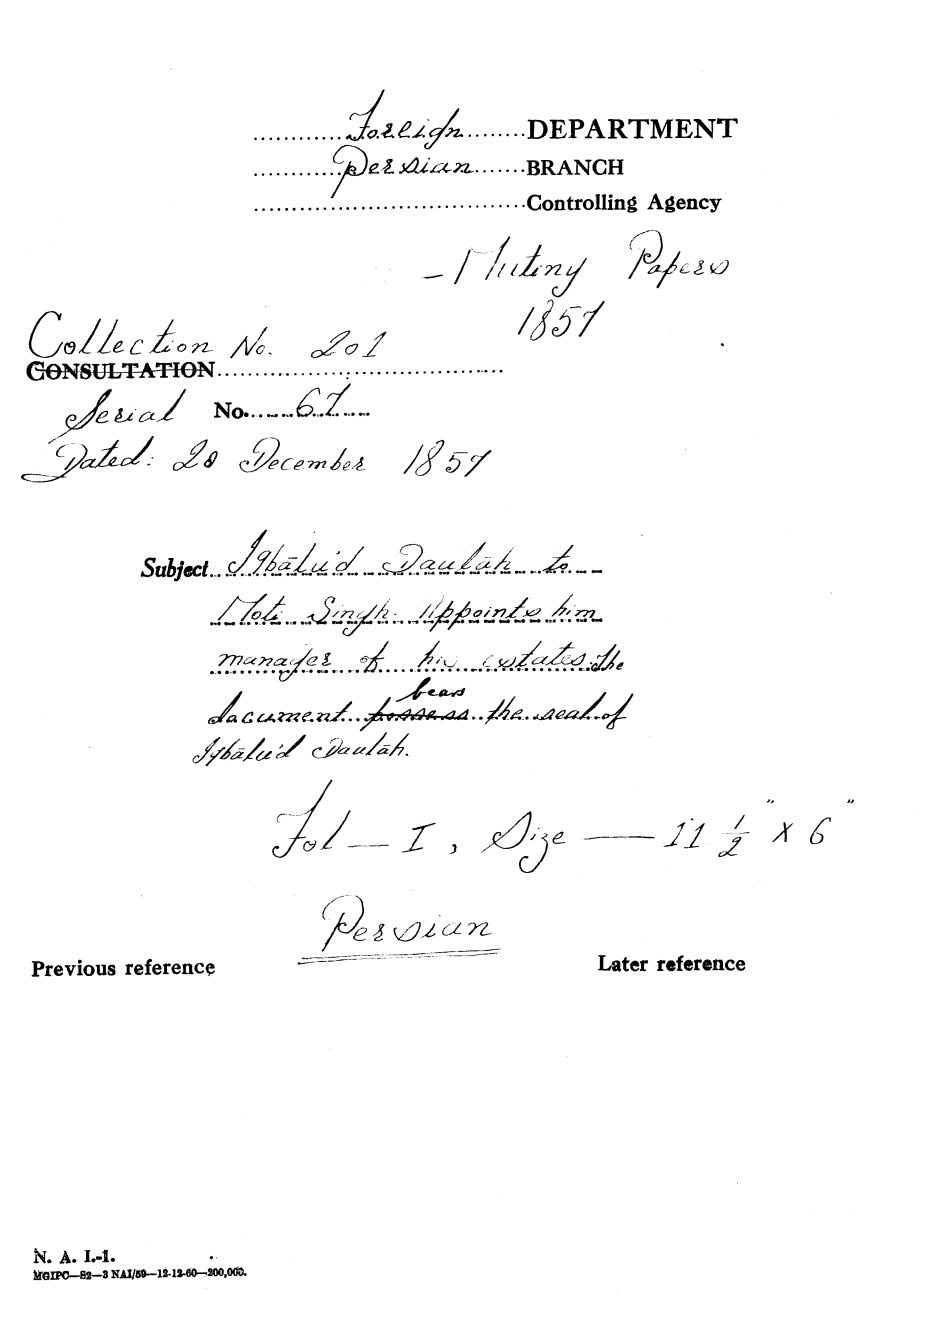 ............Foreign........DEPARTMENT
............Persian.......BRANCH
....................................Controlling Agency
- Mutiny Papers
1857
Collection No. 201
CONSULTATION......................................
Serial No. 67
Dated: 20 December 1857
Subject Iqbālu'd Daulāh to
Moti Singh. Appoints him
manager of his estates. The
bears
document possess the seal of
Iqbālu'd Daulāh.
Fol — I, Size —— 11 1/2" x 6"
Persian
Previous reference Later reference
N. A. I.-1.
MGIPC—S2—3 NAI/59—12-12-60—200,000.